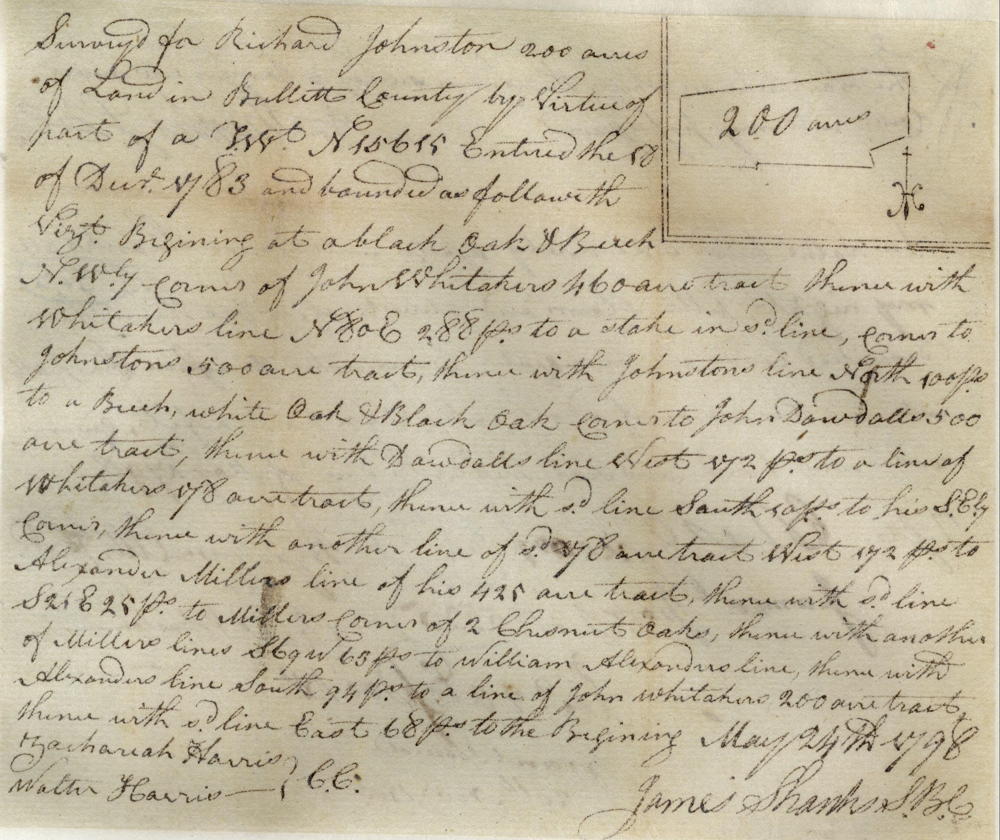 Survey'd for Richard Johnston 200 acres
of Land in Bullitt County by Virtue of
part of a Wt. N 15615 Entired the 18
of Decr. 1783 and bounded as followeth
Vizt. Begining at a black Oak & Beech
N.Wly corner of John Whitakers 460 acre tract thence with
Whitakers line N80E 288 ps to a stake in sd line, corner to
Johnstons 500 acre tract, thence with Johnstons line North 100 ps
to a Beech, white Oak & Black Oak corner to John Dawdalls 500
acre tract, thence with Dawdalls line West 172 ps to a line of
Whitakers 178 acre tract, thence with sd line South 10 ps to his S.Ely
Corner, thence with another line of sd 178 acre tract West 172 ps to
Alexander Millers line of his 425 acre tract, thence with sd line
S21E 25 ps to Millers corner of 2 Chesnut Oaks, thence with another
of Millers lines S69W 65 ps to William Alexanders line, thence with
Alexanders line South 94 ps to a line of John Whitakers 200 acre tract,
thence with sd line East 68 ps to the Begining May 24th 1798
Zachariah Harris
Walter Harris } C.C.
James Shanks S.B.C
200 acres
N